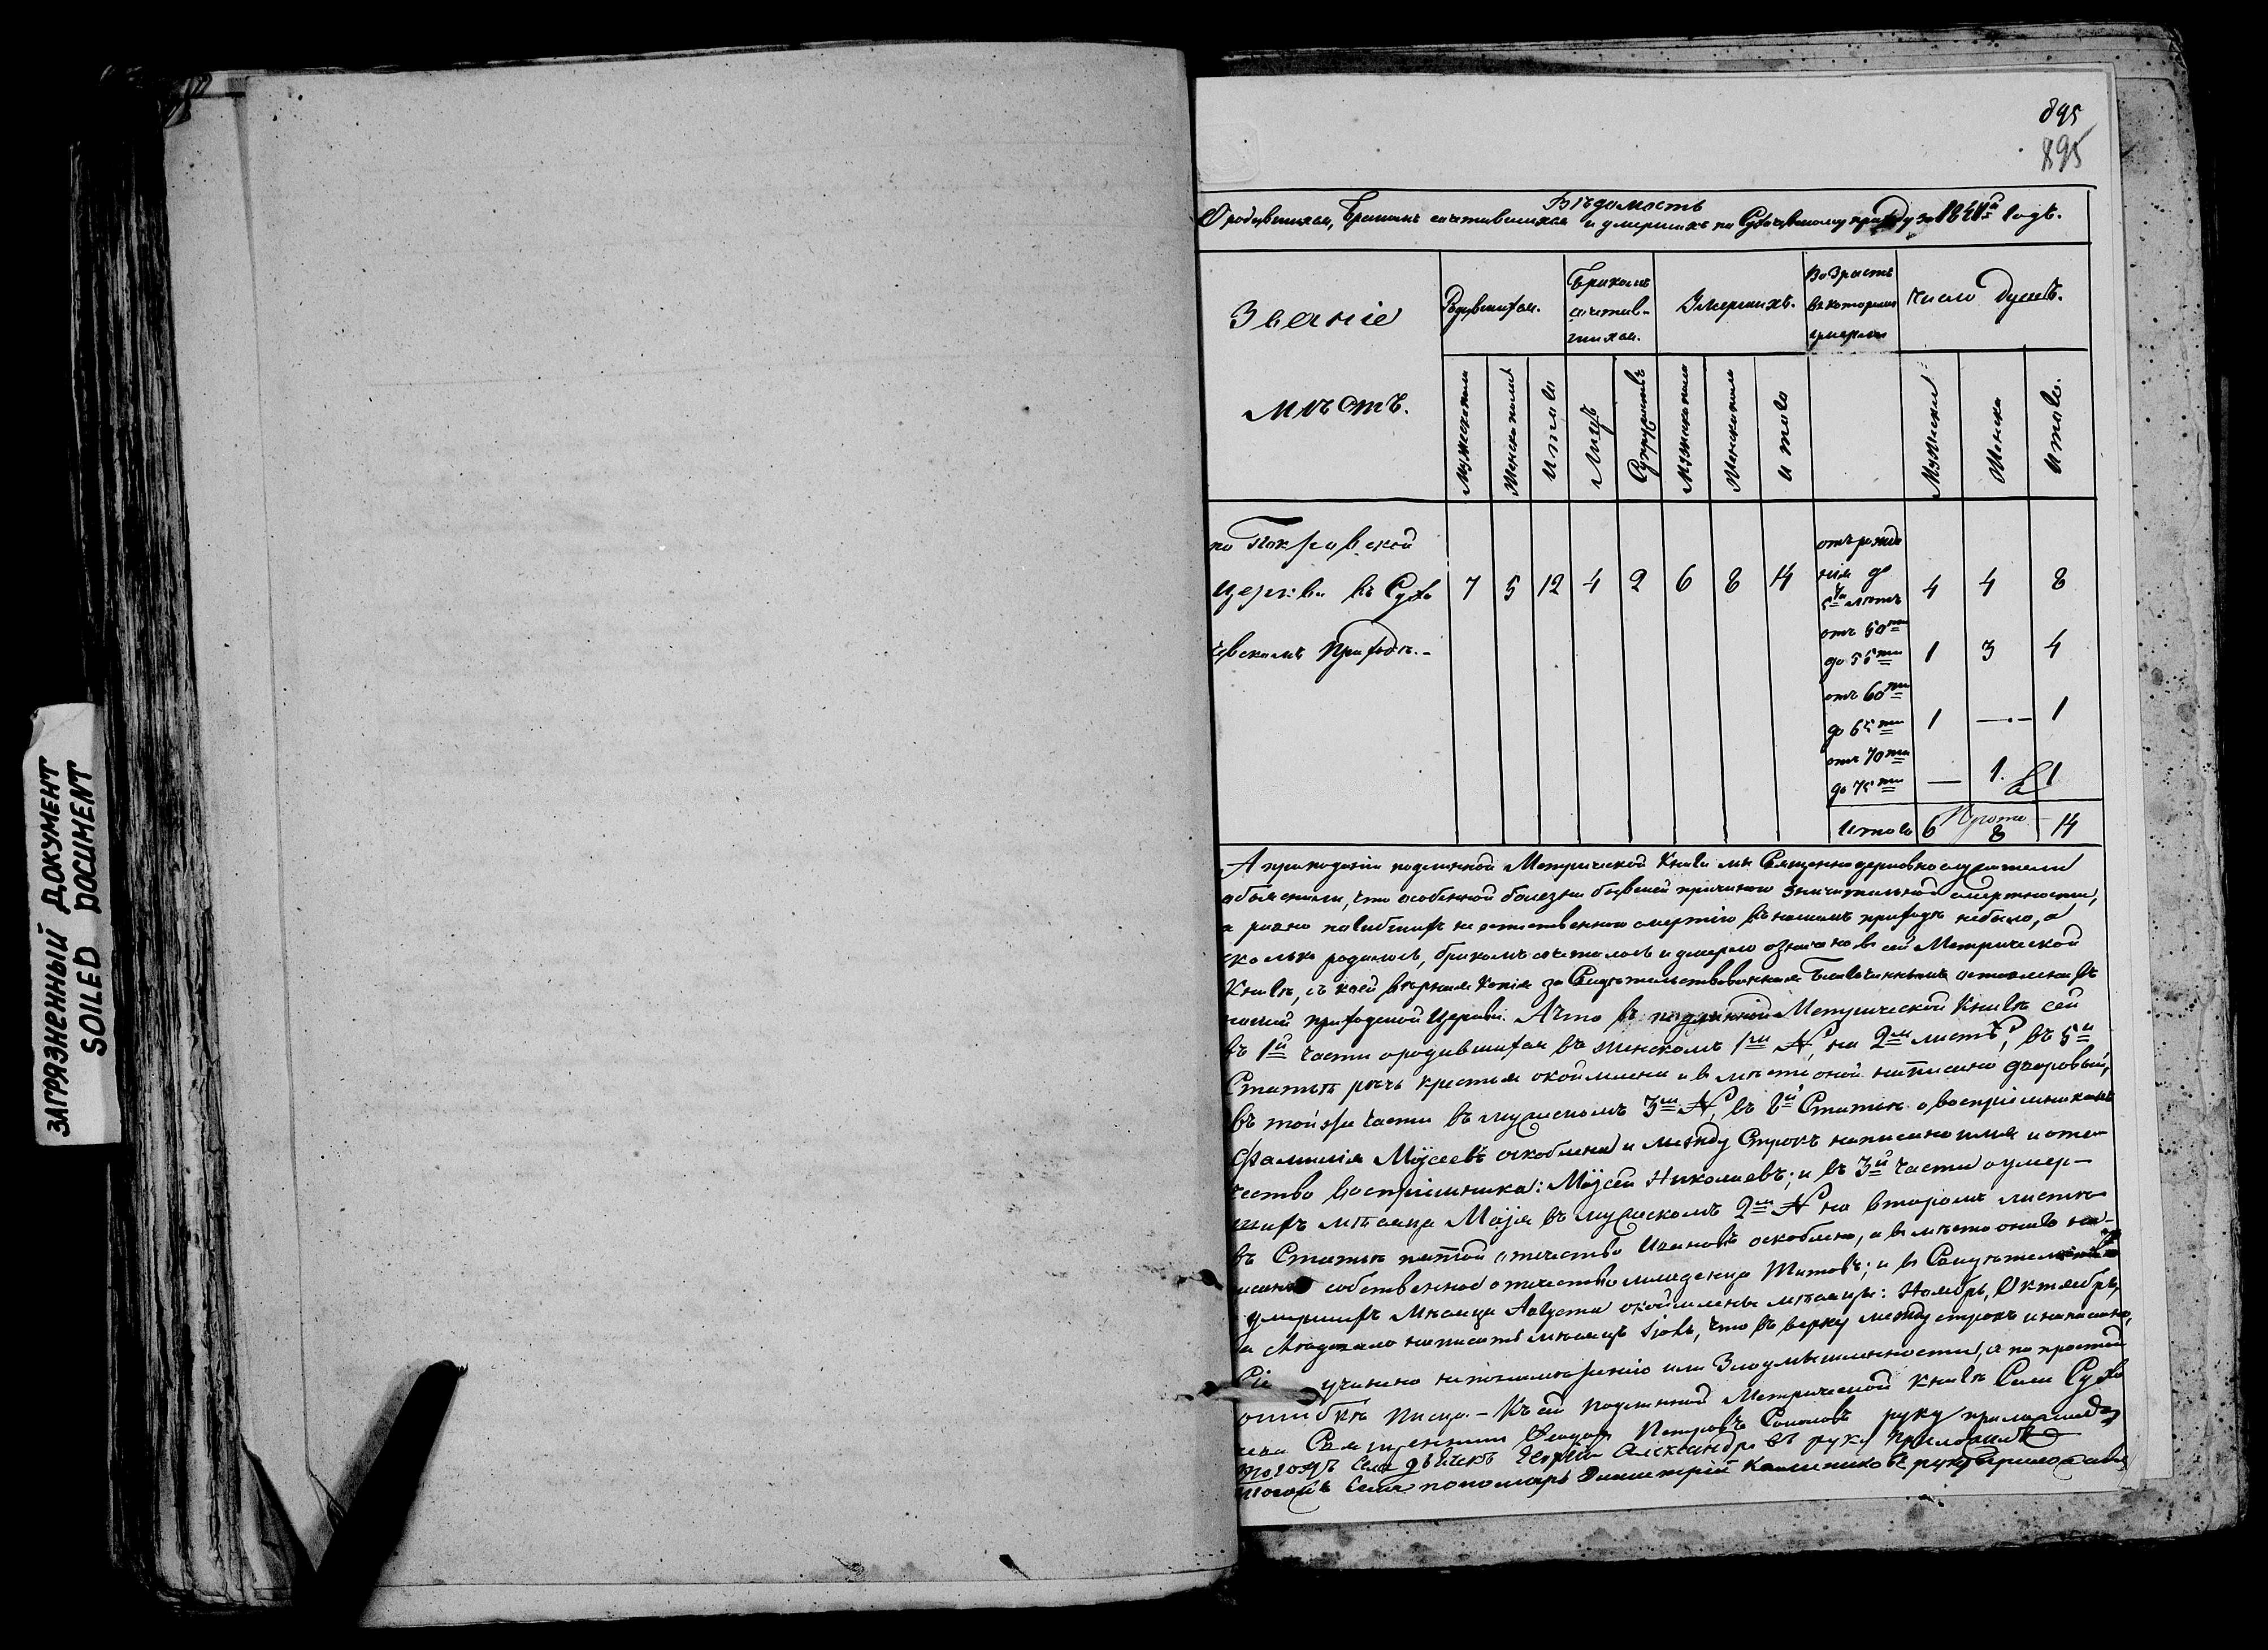 ЗАГРЯЗНЕННЫЙ ДОКУМЕНТ
SOILED DOCUMENT
895
895
Вѣдомость
О родившихся, бракомъ сочетавшихся и умершихъ по приходу за годъ.
Званіе мѣстъ.
Родившихся.
Бракомъ сочетавшихся.
Умершихъ.
Возрастъ въ которомъ умерли
Число душъ.
Мужеска пола
Женска пола
Итого
Лицъ
Супружествъ
Мужеска пола
Женска пола
Итого
Мужска
Женска
Итого.
по Покровской
церкви въ Сухо 7 5 12 4 2 6 8 14
чевскомъ приходѣ.-
отъ рожде
нія до
5ти лѣтъ 4 4 8
отъ 50ти
до 55ти 1 3 4
отъ 60ти
до 65ти 1 —·— 1
отъ 70ти
до 75ти — 1. 1
Итого 6 8 14
А при поданіи подлинной Метрической Книги мы Священноцерковнослужители
объяснили, что особенной болезни бывшей причиною значительной смертности,
а равно погибшихъ не естественною смертію въ нашемъ приходѣ небыло, а
сколько родилось, бракомъ сочеталось и умерло означено въ сей Метрической
Книгѣ, съ коей вѣрная копія за Свидѣтельствованная Благочиннымъ оставлена въ
нашей приходской Церкви. А что въ подлинной Метрической Книгѣ сей
въ 1й части о родившихся въ женскомъ 1м № на 2м листѣ, въ 5й
Статьѣ рѣчь крестья окоймлена и в мѣсто оной написано дворовый,
въ той же части въ мужескомъ 3м №, въ Статьѣ о воспріемникахъ
фамилія Моѵсеевъ оскоблена и между Строкъ написано имя и оте-
чество воспріемника: Моѵсей Николаевъ; и въ 3й части о умер-
шихъ мѣсяца Маія въ мужескомъ 2м № на второмъ листѣ
въ Статьѣ пятой отчество Ивановъ оскоблено, а в мѣсто онаго на-
писано собственное отчество младенца Титовъ; и въ
умершихъ Мѣсяца Августа окоймлены мѣсяцы: Ноябрь, Октябрь,
а написать мѣсяцъ что въ верху между строкъ и написано,
Сіе учинено не по намѣренію или Злоумышленности, а по простой
ошибкѣ писца.- Къ сей подлинной Метрической книгѣ Села Сухо
чева Священникъ Петровъ руку приложилъ
тогожъ Села дьячекъ Георгій Александровъ руку приложилъ
тогожъ Села пономарь Димитрій Калиниковъ руку приложилъ